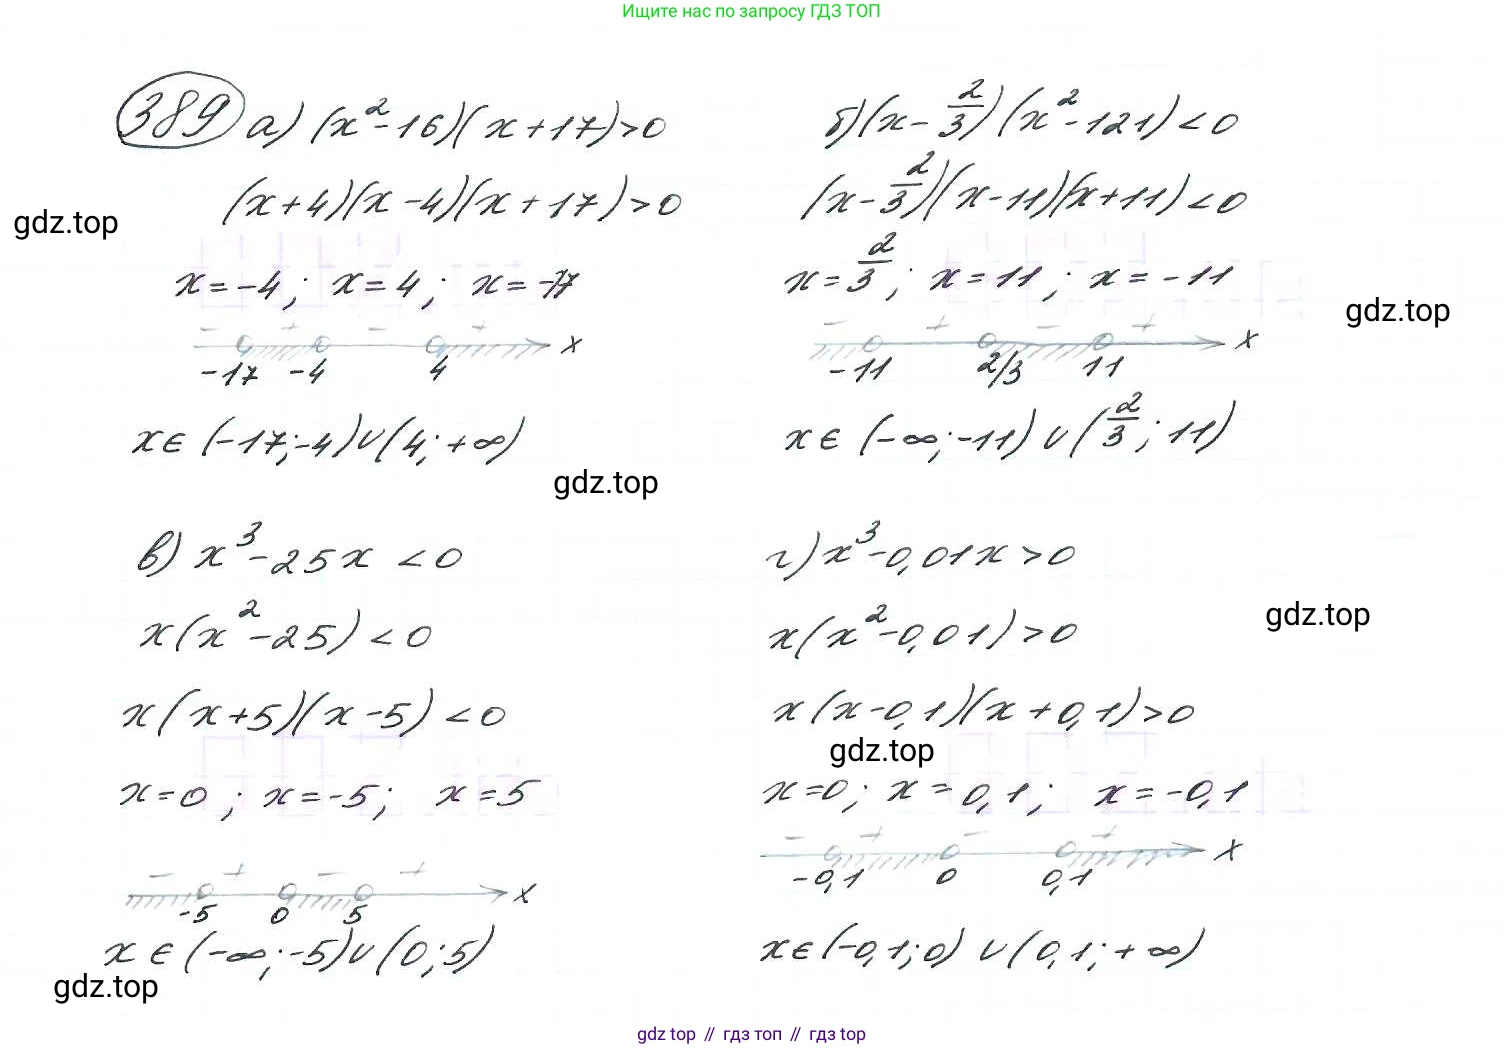 Ищите нас по запросу ГДЗ ТОП
389 а) (x²-16)(x+17)>0
(x+4)(x-4)(x+17)>0
gdz.top
x=-4; x=4; x=-17
- + - +
-17 -4 4 x
x∈(-17;-4)∪(4;+∞)
б) (x-2/3)(x²-121)<0
(x-2/3)(x-11)(x+11)<0
x=2/3; x=11; x=-11
gdz.top
- + - +
-11 2/3 11 x
x∈(-∞;-11)∪(2/3;11)
gdz.top
в) x³-25x<0
x(x²-25)<0
x(x+5)(x-5)<0
x=0; x=-5; x=5
- + - +
-5 0 5 x
x∈(-∞;-5)∪(0;5)
gdz.top
г) x³-0,01x>0
gdz.top
x(x²-0,01)>0
x(x-0,1)(x+0,1)>0
gdz.top
x=0; x=0,1; x=-0,1
- + - +
-0,1 0 0,1 x
x∈(-0,1;0)∪(0,1;+∞)
gdz top // гдз топ // гдз top